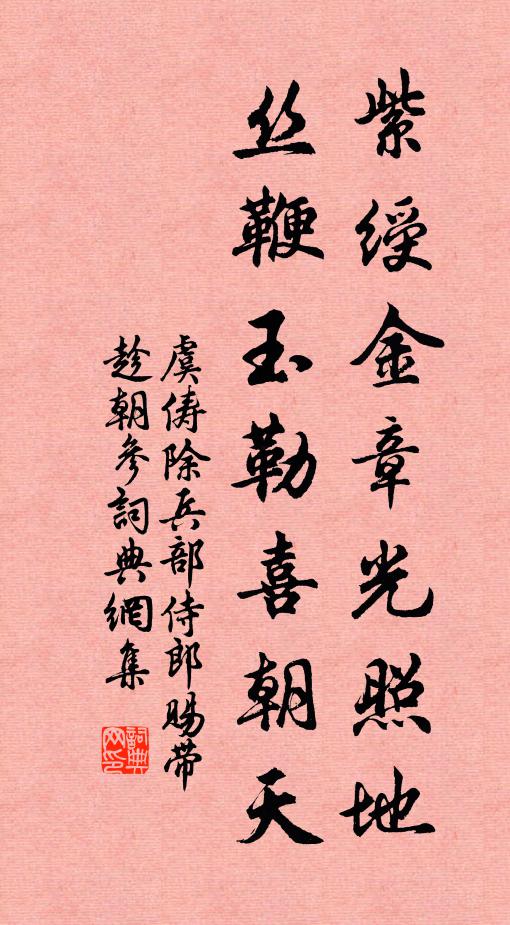 紫綬金章光照地
丝鞭玉勒喜朝天
虞俦除兵部侍郎賜带
趁朝參詞典網集
詞典网印